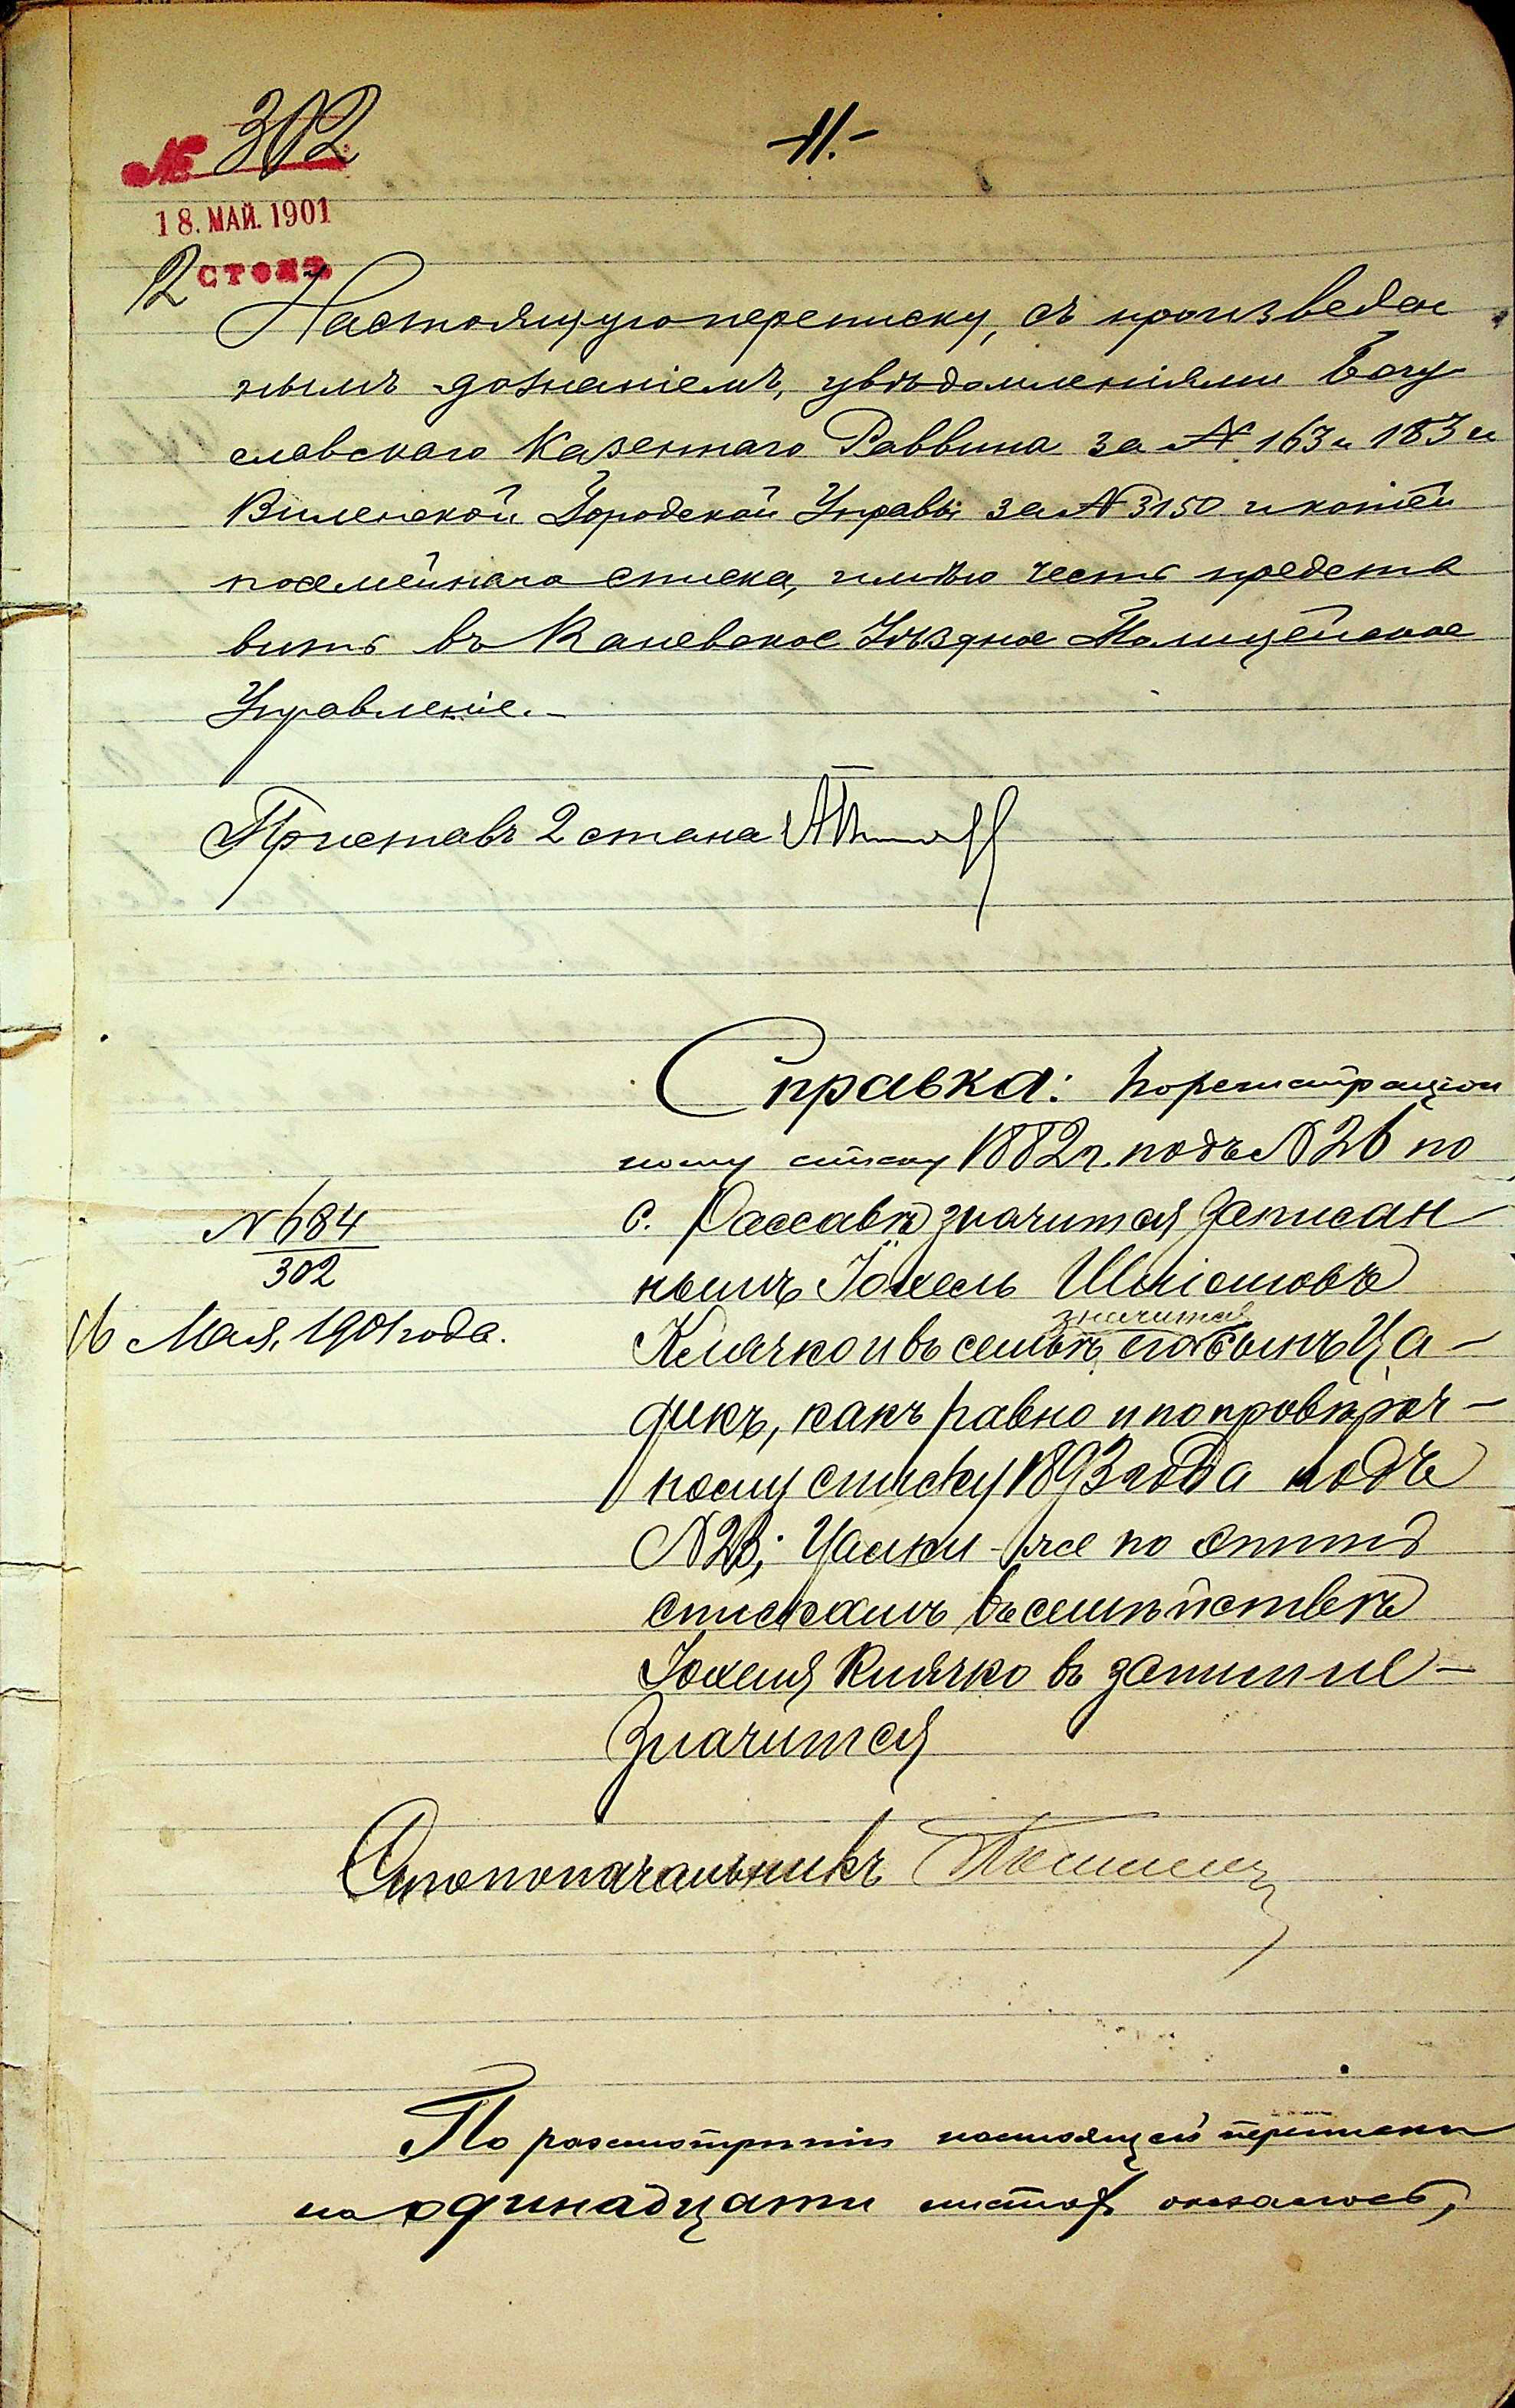 № 302
-11.-
18. МАЙ. 1901
2 столъ
Настоящую переписку, съ произведен
нымъ дознаніемъ, увѣдомленіями Богу
славскаго Казеннаго Раввина за № 163 и 183 и
Виленской Городской Управы за № 3150 и копіей
посемейнаго списка, имѣю честь предста
вить въ Каневское Уѣздное Полицейское
Управленіе.-
Приставъ 2 стана
Справка: по регистрацiон
ному списку 1882 г. подъ № 26 по
с. Россавѣ значится записан
нымъ Іохель Шліомовъ
№ 684
302
16 Мая, 1901 года.
значится
Клячко и въ семьѣ его сынъ Ца-
дикъ, какъ равно и по провѣроч-
ному списку 1893 года подъ
№ 23; же по этимъ
спискамъ въ семействѣ
Іохеля Клячко въ записи не-
значится
Столоначальникъ
По разсмотрѣніи настоящей переписки
на одинадцати листахъ оказалось,